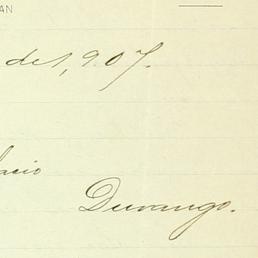 AN
de 1,907.
lacio
Durango.